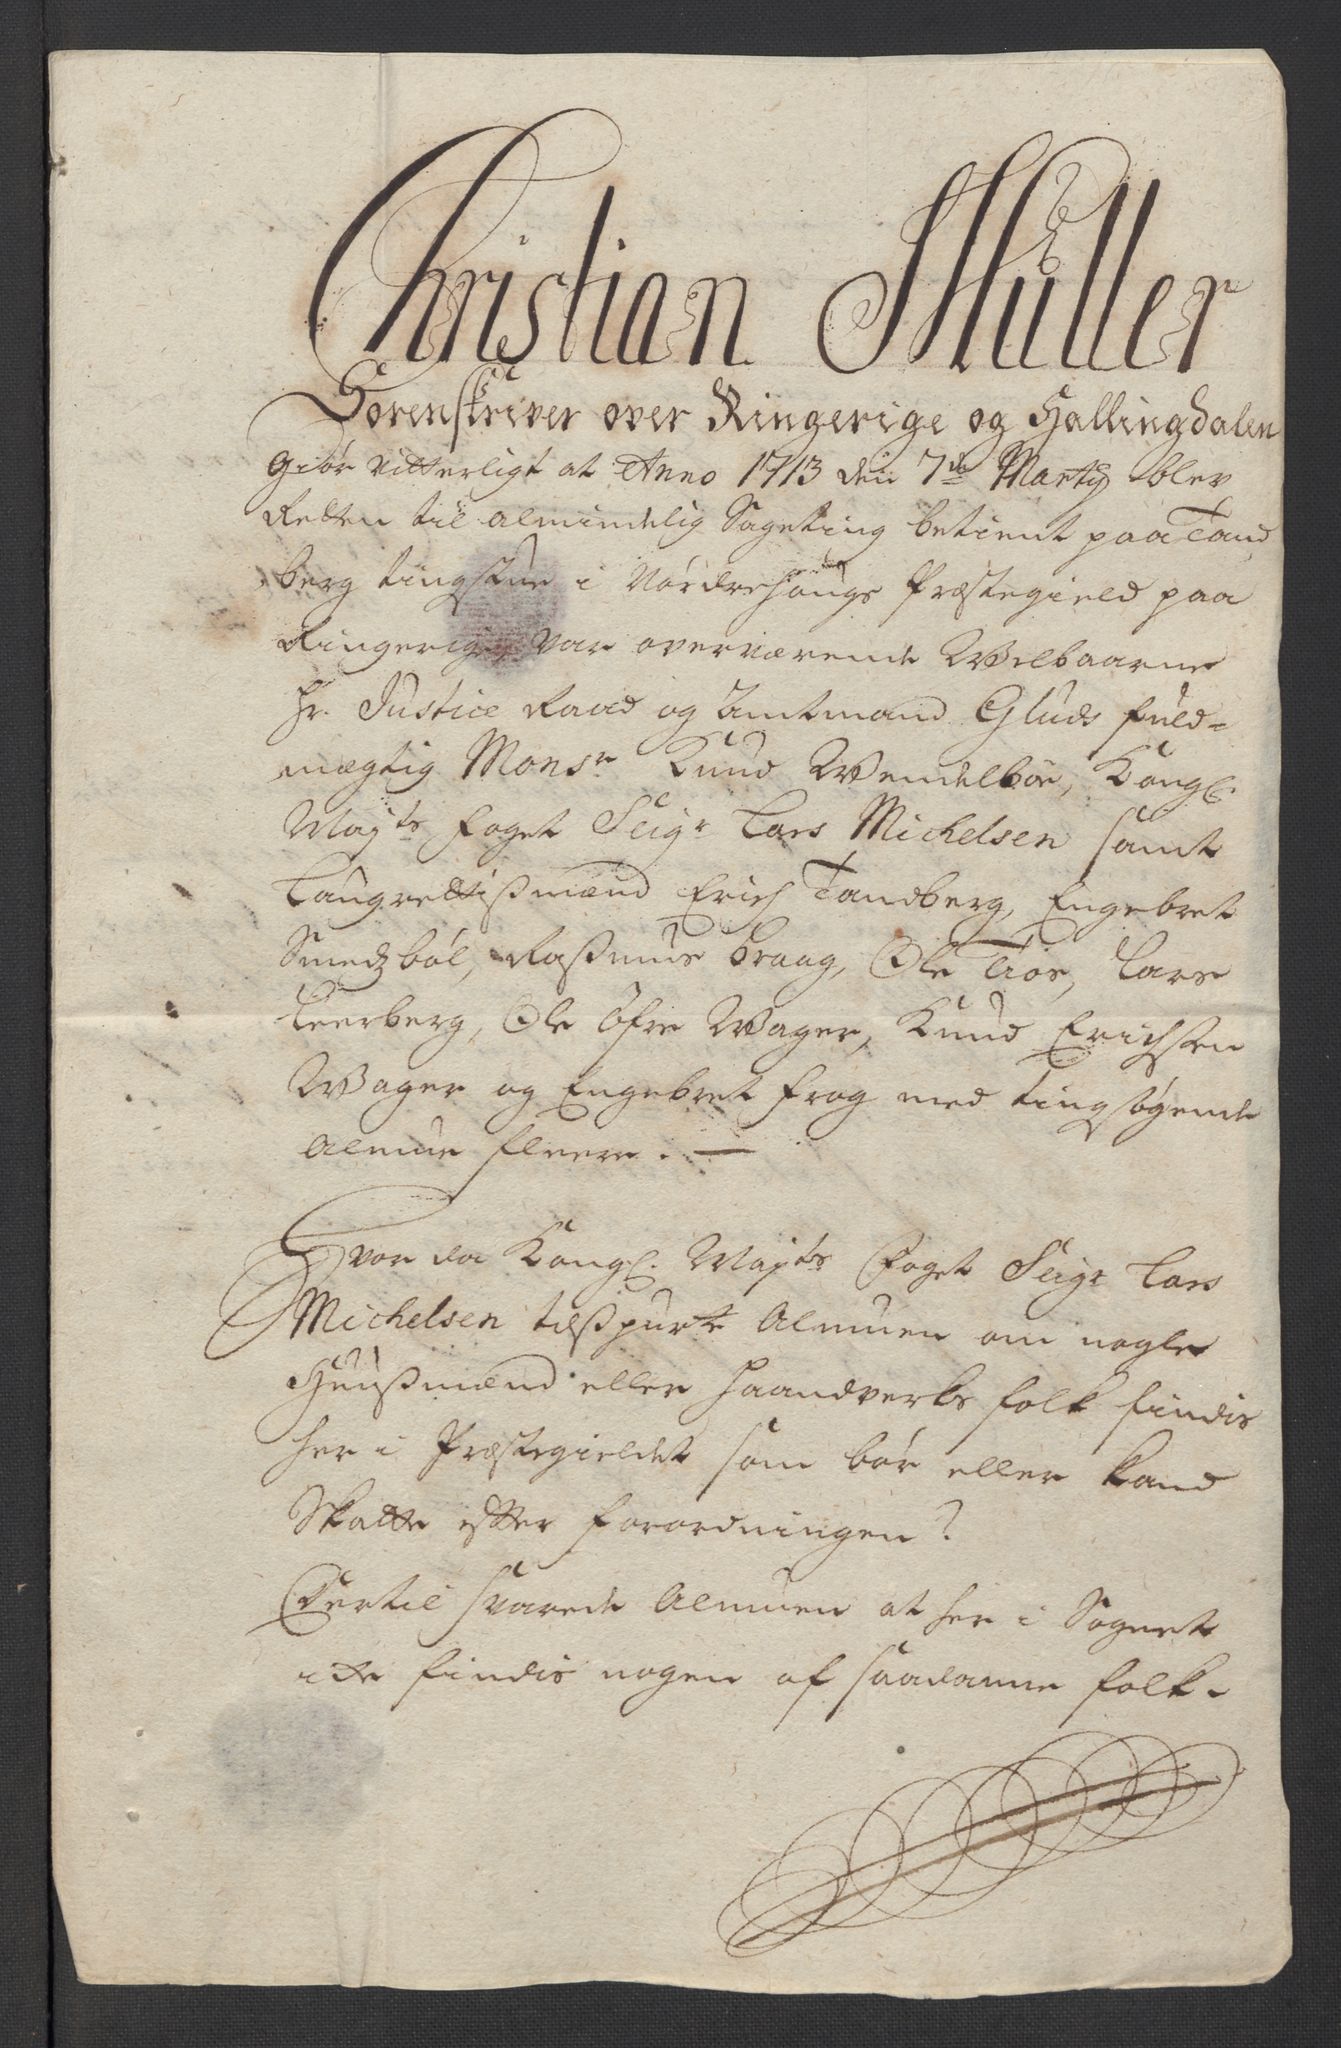 Christian Muller
Sorenskriver over Ringerige og Hallingdalen
Giör vitterligt at Anno 1713 den 7de Martÿ blev
Retten til almindelig Sageting betient paa Tand
berg tingstue i Nordrehougs Præstegield paa
Ringerige, var overværende Welbaarne
Hr. Justice Raad og Amtmand Gluds fuld=
mægtig Monsr Knud Wendelboe, Kongl.
Mayts Foget Seigr Lars Michelsen samt
Laugrettismænd Erich Tandberg, Engebret
Smedzböl, Rasmus Braag, Ole Tiös, Lars
Leerberg, Ole öfre Wager, Knud Erichsen
Wager og Engebret Frog med tingsögende
Almue fleere. —
Hvor da Kongl. Mayts Foget Seigr Lars
Michelsen tilspurte Almuen om nogle
Huusmænd eller Haandverks folk findis
her i Præstegieldet som bör eller kand
Skatte efter forordningen?
Dertil svarede Almuen at her i Sognet
icke findis nogen af saadanne folk.